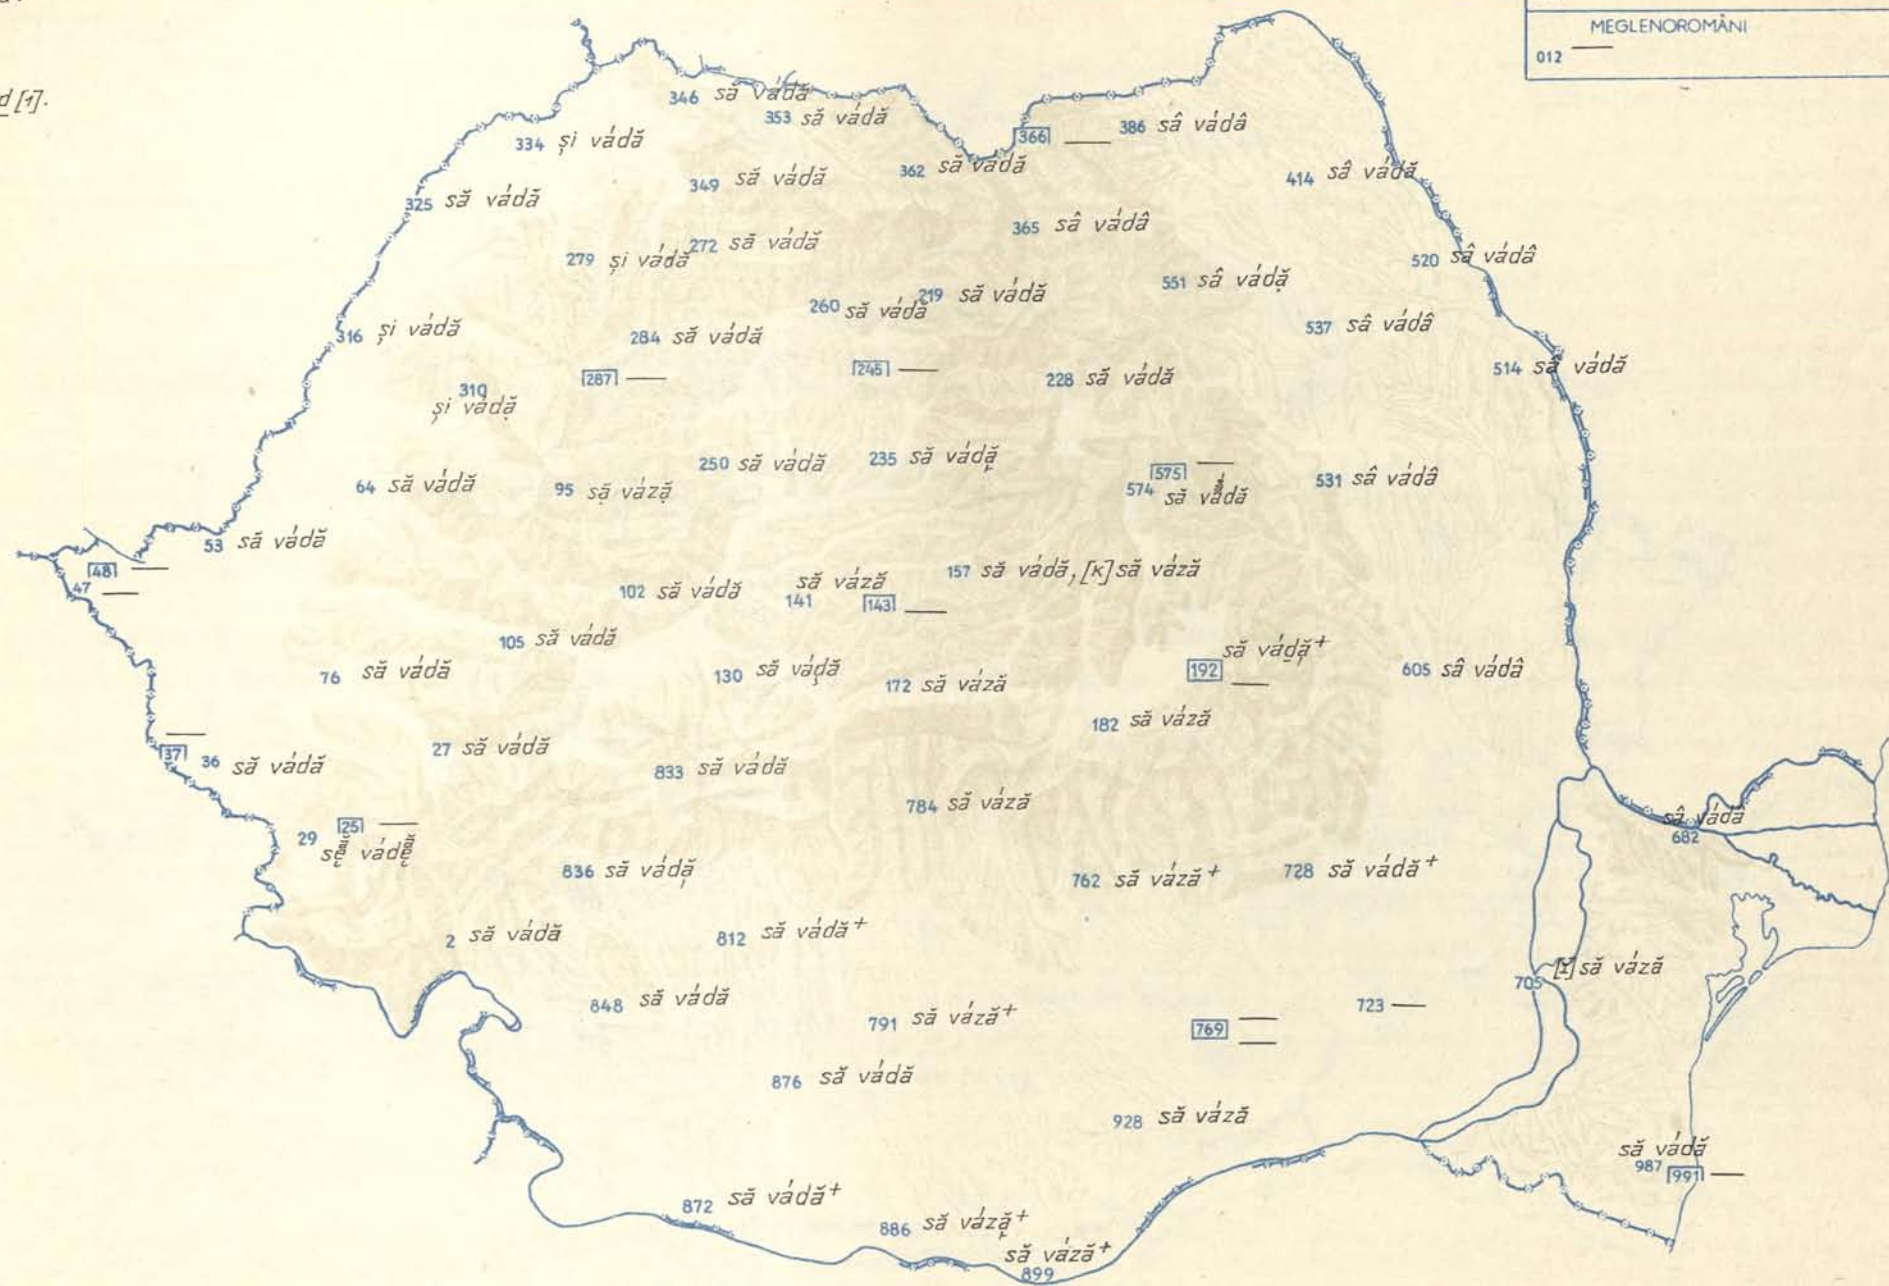 d [1].
MEGLENOROMÂNI
012 —
346 să vádă
353 să vádă
334 și vádă
366 —
386 sâ vádâ
349 să vádă
362 să vádă
414 sâ vádă
325 să vádă
365 sâ vádâ
272 să vádă
279 și vádă
520 sâ vádâ
551 sâ vádă
219 să vádă
260 să vádă
316 și vádă
284 să vádă
537 sâ vádâ
514 să vádă
287 —
245 —
228 să vádă
310 și vádă
250 să vádă
235 să vádă
575 —
574 să vádă
531 sâ vádâ
64 să vádă
95 să váză
53 să vádă
48 —
47 —
102 să vádă
141 să váză
143 —
157 să vádă, [K] să váză
105 să vádă
76 să vádă
130 să vádă
172 să váză
192 să vádă+ —
605 sâ vádâ
182 să váză
37 —
36 să vádă
27 să vádă
833 să vádă
784 să váză
25 —
29
682 sâ vádâ
836 să vádă
762 să váză+
728 să vádă+
2 să vádă
812 să vádă+
705 să váză
848 să vádă
791 să váză+
769 — —
723 —
876 să vádă
928 să váză
987 să vádă
991 —
872 să vádă+
886 să váză+
899 să váză+